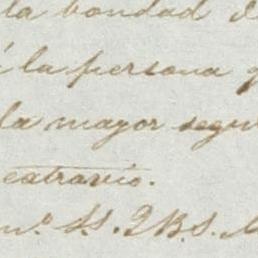 la bondad d
á la persona q
la mayor segu
extravio.
m.º S.S. Q.B.S.M